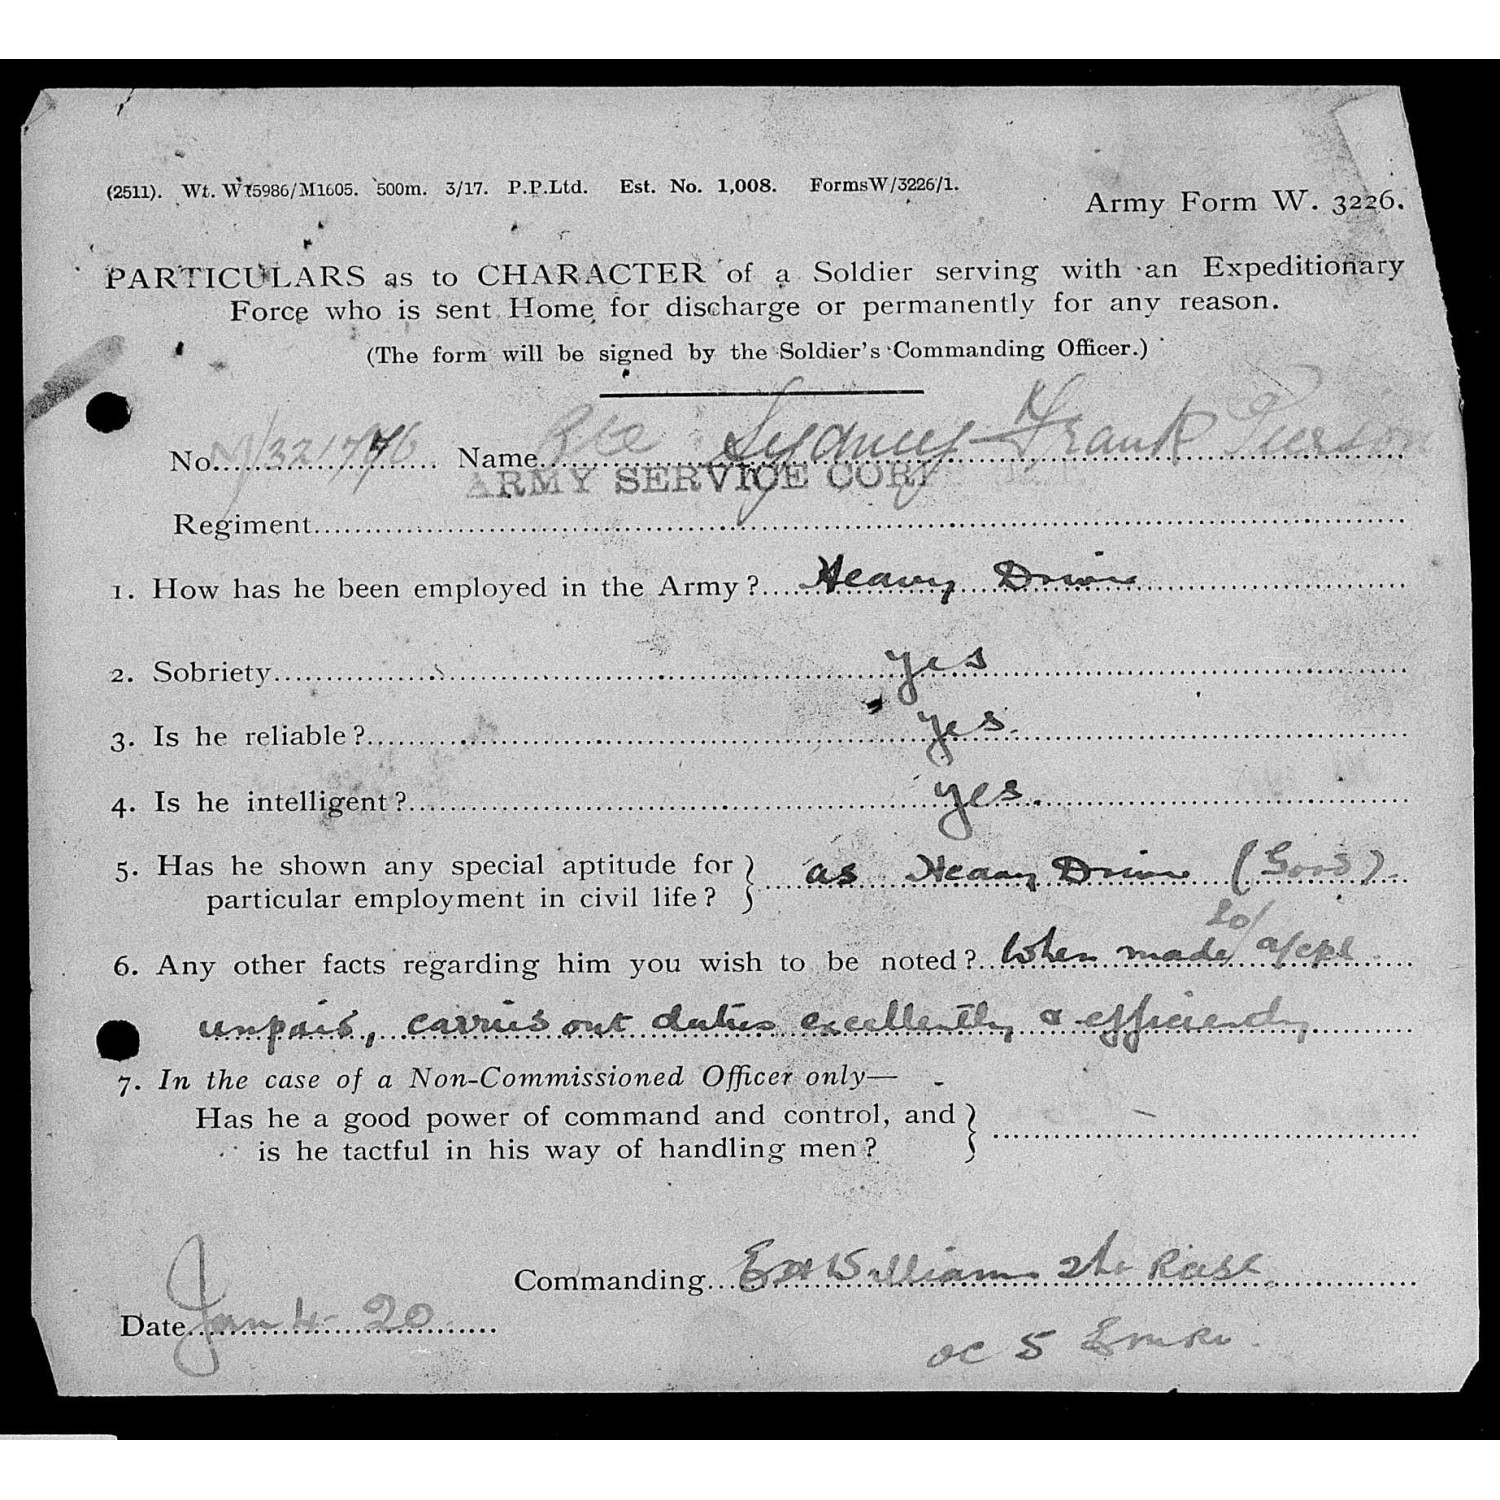 (2511). Wt. W15986/M1605. 500m. 3/17. P.P.Ltd. Est. No. 1,008. FormsW/3226/1.
Army Form W. 3226.
PARTICULARS as to CHARACTER of a Soldier serving with an Expeditionary
Force who is sent Home for discharge or permanently for any reason.
(The form will be signed by the Soldier's Commanding Officer.)
No. M/321776 Name Pte Sydney Frank Pierson
ARMY SERVICE CORP
Regiment
1. How has he been employed in the Army? Heavy Driver
2. Sobriety yes
3. Is he reliable? yes.
4. Is he intelligent? yes.
5. Has he shown any special aptitude for
particular employment in civil life? } as Heavy Driver (Good)
6. Any other facts regarding him you wish to be noted? When made a/cpl
unpaid, carries out duties excellently & efficiently
7. In the case of a Non-Commissioned Officer only—
Has he a good power of command and control, and
is he tactful in his way of handling men? }
Commanding Williams
Date Jan 4 - 20
OC 5